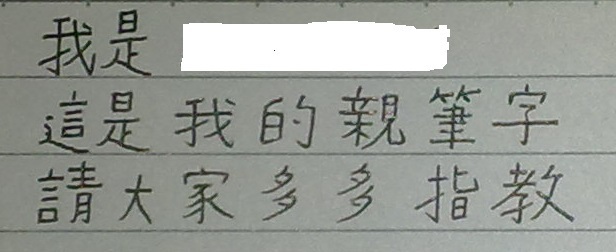 我是
這是我的親筆字
請大家多多指教